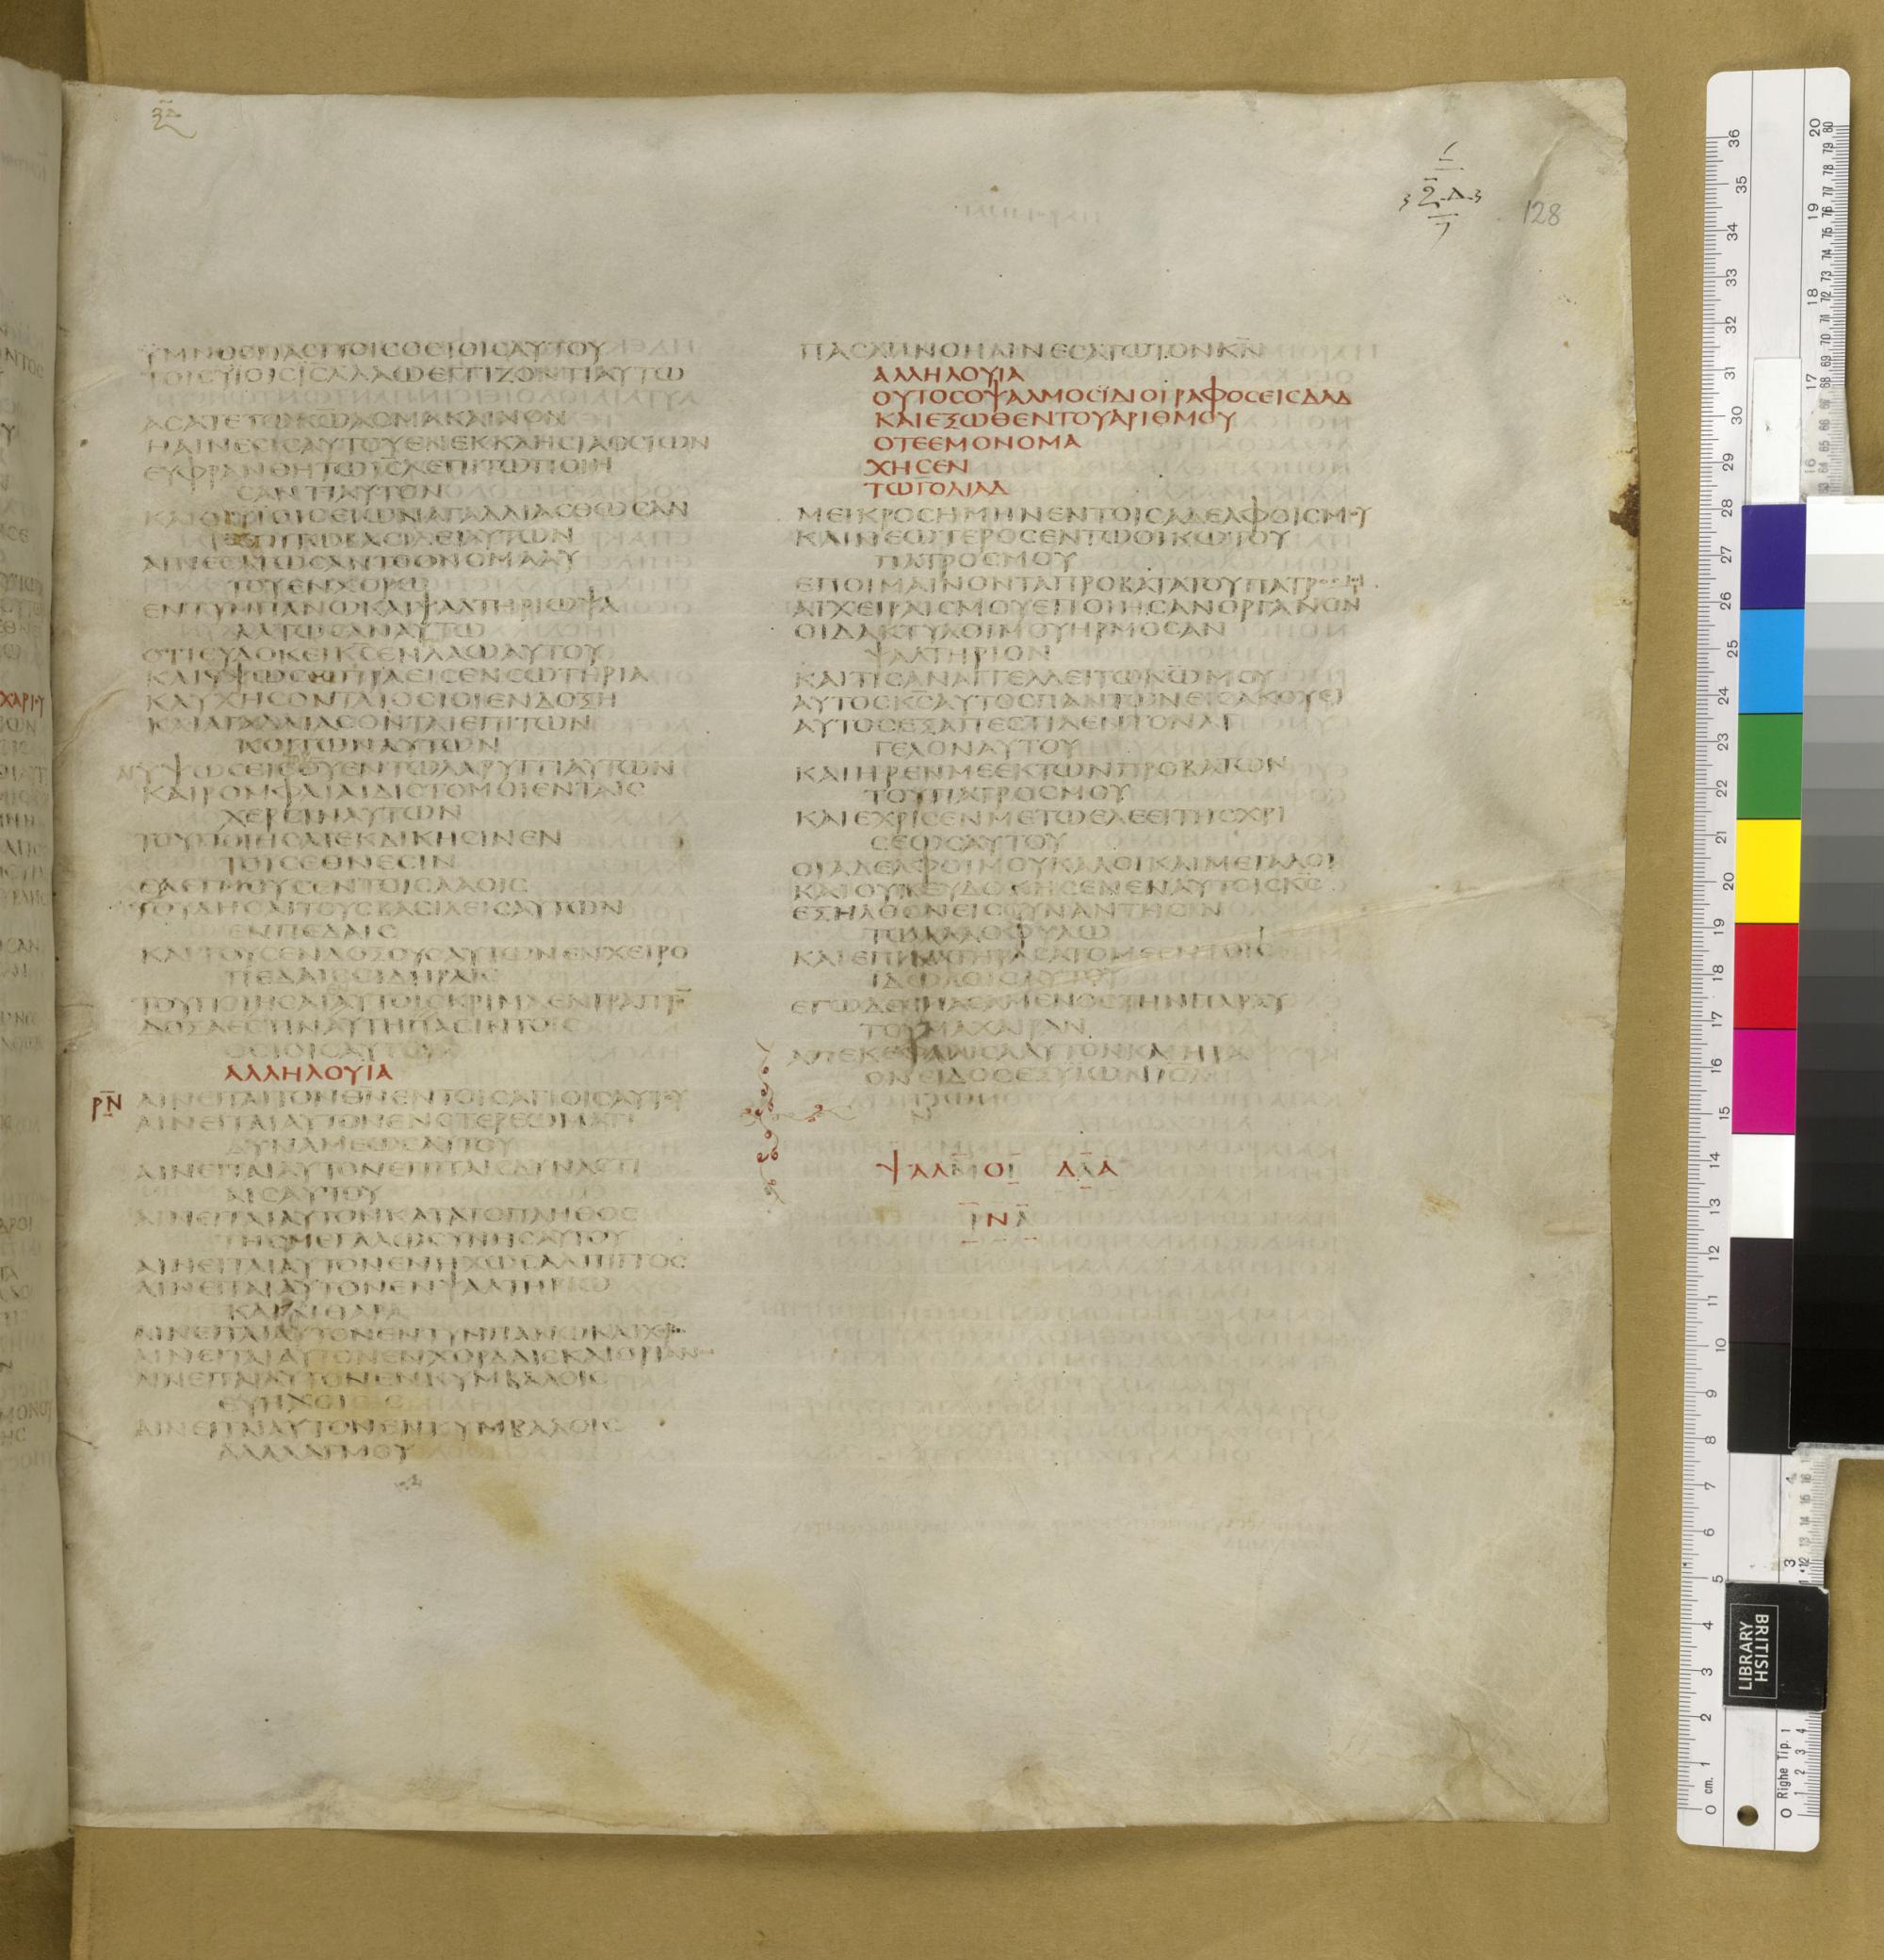 128
ΥΜΝΟΣΠΑCΙΤΟΙCΟCΙΟΙCΑΥΤΟΥ
ΤΟΙCΥΙΟΙCΙCΛΛΑΩΕΓΓΙΖΟΝΤΙΑΥΤΩ
ΑCΑΤΕΤΩΚΩΑCΜΑΚΑΙΝΟΝ
ΗΑΙΝΕCΙCΑΥΤΟΥΕΝΕΚΚΛΗCΙΑΟCΙΩΝ
ΕΥΦΡΑΝΘΗΤΩΙCΛΕΠΙΤΩΠΟΙΗ
CΑΝΤΙΑΥΤΟΝ
ΑΙΝΕCΑΤΩCΑΝΤΟΟΝΟΜΑΑΥ
ΤΟΥΕΝΧΟΡΩ
ΕΝΤΥΜΠΑΝΩΚΑΙΨΑΛΤΗΡΙΩΨΑ
ΛΑΤΩCΑΝΑΥΤΩ
ΟΤΙΕΥΔΟΚΕΙΚCΕΝΛΑΩΑΥΤΟΥ
ΚΑΙΥΨΩCΕΙΠΡΑΕΙCΕΝCΩΤΗΡΙΑ
ΚΑΥΧΗCΟΝΤΑΙΟCΙΟΙΕΝΔΟΞΗ
ΚΑΙΑΓΑΛΛΙΑCΟΝΤΑΙΕΠΙΤΩΝ
ΚΟΙΤΩΝΑΥΤΩΝ
ΚΑΙΡΟΜΦΑΙΑΙΔΙCΤΟΜΟΙΕΝΤΑΙC
ΧΕΡCΙΝΑΥΤΩΝ
ΤΟΥΠΟΙΗCΑΙΕΚΔΙΚΗCΙΝΕΝ
ΤΟΙCΕΘΝΕCΙΝ
ΕΛΕΓΜΟΥCΕΝΤΟΙCΛΑΟΙC
ΤΟΥΔΗCΑΙΤΟΥCΒΑCΙΛΕΙCΑΥΤΩΝ
ΕΝΠΕΔΑΙC
ΚΑΙΤΟΥCΕΝΔΟΞΟΥCΑΥΤΩΝΕΝΧΕΙΡΟ
ΠΕΔΑΙCCΙΔΗΡΑΙC
ΤΟΥΠΟΙΗCΑΙΑΥΤΟΙCΚΡΙΜΑΕΝΓΡΑΠΤΟ̅
ΔΟΞΑΕCΤΙΝΑΥΤΗΠΑCΙΝΤΟΙC
ΟCΙΟΙCΑΥΤΟΥ
ΑΛΛΗΛΟΥΙΑ
ΡΝ̅ ΑΙΝΕΙΤΑΙΤΟΝΘΝ̅ΕΝΤΟΙCΑΓΙΟΙCΑΥΤΟΥ
ΑΙΝΕΙΤΑΙΑΥΤΟΝΕΝCΤΕΡΕΩΜΑΤΙ
ΔΥΝΑΜΕΩCΑΥΤΟΥ
ΑΙΝΕΙΤΑΙΑΥΤΟΝΕΠΙΤΑΙCΔΥΝΑCΤΙ
ΑΙCΑΥΤΟΥ
ΑΙΝΕΙΤΑΙΑΥΤΟΝΚΑΤΑΤΟΠΛΗΘΟC
ΤΗCΜΕΓΑΛΩCΥΝΗCΑΥΤΟΥ
ΑΙΝΕΙΤΑΙΑΥΤΟΝΕΝΗΧΩCΑΛΠΙΓΓΟC
ΑΙΝΕΙΤΑΙΑΥΤΟΝΕΝΨΑΛΤΗΡΙΩ
ΚΑΙΚΙΘΑΡΑ
ΑΙΝΕΙΤΑΙΑΥΤΟΝΕΝΤΥΜΠΑΝΩΚΑΙΧΟΡΩ
ΑΙΝΕΙΤΑΙΑΥΤΟΝΕΝΧΟΡΔΑΙCΚΑΙΟΡΓΑΝΩ
ΑΙΝΕΙΤΑΙΑΥΤΟΝΕΝΚΥΜΒΑΛΟΙC
ΕΥΗΧΟΙC
ΑΙΝΕΙΤΑΙΑΥΤΟΝΕΝΚΥΜΒΑΛΟΙC
ΑΛΑΛΑΓΜΟΥ
ΠΑCΑΠΝΟΗΑΙΝΕCΑΤΩΤΟΝΚΝ̅
ΑΛΛΗΛΟΥΙΑ
ΟΥΤΟCΟΨΑΛΜΟCΪΔΙΟΓΡΑΦΟCΕΙCΔΑΔ
ΚΑΙΕΞΩΘΕΝΤΟΥΑΡΙΘΜΟΥ
ΟΤΕΕΜΟΝΟΜΑ
ΧΗCΕΝ
ΤΩΓΟΛΙΑΔ
ΜΕΙΚΡΟCΗΜΗΝΕΝΤΟΙCΑΔΕΛΦΟΙCΜΟΥ
ΚΑΙΝΕΩΤΕΡΟCΕΝΤΩΟΙΚΩΤΟΥ
ΠΑΤΡΟCΜΟΥ
ΕΠΟΙΜΑΙΝΟΝΤΑΠΡΟΒΑΤΑΤΟΥΠΑΤΡΟCΜΟΥ
ΑΙΧΕΙΡΑΙCΜΟΥΕΠΟΙΗCΑΝΟΡΓΑΝΟΝ
ΟΙΔΑΚΤΥΛΟΙΜΟΥΗΡΜΟCΑΝ
ΨΑΛΤΗΡΙΟΝ
ΚΑΙΤΙCΑΝΑΓΓΕΛΛΕΙΤΩΚΩΜΟΥ
ΑΥΤΟCΚCΑΥΤΟCΠΑΝΤΩΝΕΙCΑΚΟΥΕΙ
ΑΥΤΟCΕΞΑΠΕCΤΙΛΕΝΤΟΝΑΓ
ΓΕΛΟΝΑΥΤΟΥ
ΚΑΙΗΡΕΝΜΕΕΚΤΩΝΠΡΟΒΑΤΩΝ
ΤΟΥΠΑΤΡΟCΜΟΥ
ΚΑΙΕΧΡΙCΕΝΜΕΤΩΕΛΕΕΙΤΗCΧΡΙ
CΕΩCΑΥΤΟΥ
ΟΙΑΔΕΛΦΟΙΜΟΥΚΑΛΟΙΚΑΙΜΕΓΑΛΟΙ
ΚΑΙΟΥΚΕΥΔΟΚΗCΕΝΕΝΑΥΤΟΙCΚC
ΕΞΗΛΘΟΝΕΙCCΥΝΑΝΤΗCΙΝ
ΤΩΑΛΛΟΦΥΛΩ
ΚΑΙΕΠΙΚΑΤΗΡΑCΑΤΟΜΕΕΝΤΟΙC
ΙΔΩΛΟΙCΑΥΤΟΥ
ΕΓΩΔΕCΠΑCΑΜΕΝΟCΤΗΝΠΑΡΑΥ
ΤΟΥΜΑΧΑΙΡΑΝ
ΑΠΕΚΕΦΑΛΙCΑΑΥΤΟΝΚΑΙΗΡΑ
ΟΝΕΙΔΟCΕΞΥΙΩΝΙCΛ
ΨΑΛΜΟΙ ΔΑΔ
ΡΝΑ
BRITISH
LIBRARY